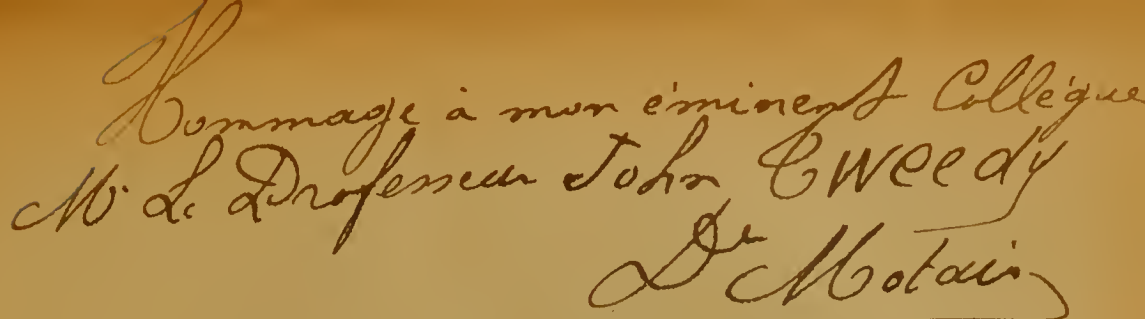 Hommage à mon éminent Collégue
Mr Le Professeur John Tweedy
Dr Motais